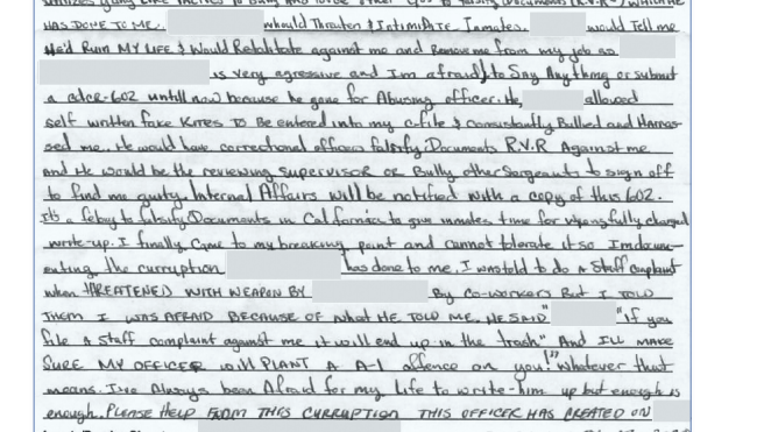 utilizes gang like tactics to Bully and
HAS DONE TO ME. whould Threaten & Intimidate Inmates. would Tell me
He'd Ruin MY LIFE & Would Retalitate against me and Remove me from my job so
is very agressive and I'm afraid to Say Anything or submit
a cdcr-602 untill now because he gone for Abusing officer. He, allowed
self written fake KITES TO BE entered into my c-file & consistantly Bullied and Harras-
sed me. He would have correctional officers falsify Documents R.V.R Against me
and He would be the reviewing SUPERVISOR OR Bully other Sergeants to sign off
to find me guilty. Internal Affairs will be notified with a copy of this 602.
It's a felony to falsify Documents in California to give inmates time for wrongfully charged
write-up. I finally Came to my breaking point and cannot tolerate it so I'm docum-
enting the curruption has done to me. I was told to do a Staff complaint
when tHREATENED WITH WEAPON BY By Co-workers But I TOLD
THEM I WAS AFRAID BECAUSE OF what HE TOLD ME. HE SAID " "if you
file a staff complaint against me it will end up in the trash" And I'LL MAKE
SURE MY OFFICER will PLANT A A-1 offence on you!" Whatever that
means. I've Always been Afraid for my Life to write-him up but enough is
enough. PLEASE HELP FROM THIS CURRUPTION THIS OFFICER HAS CREATED ON